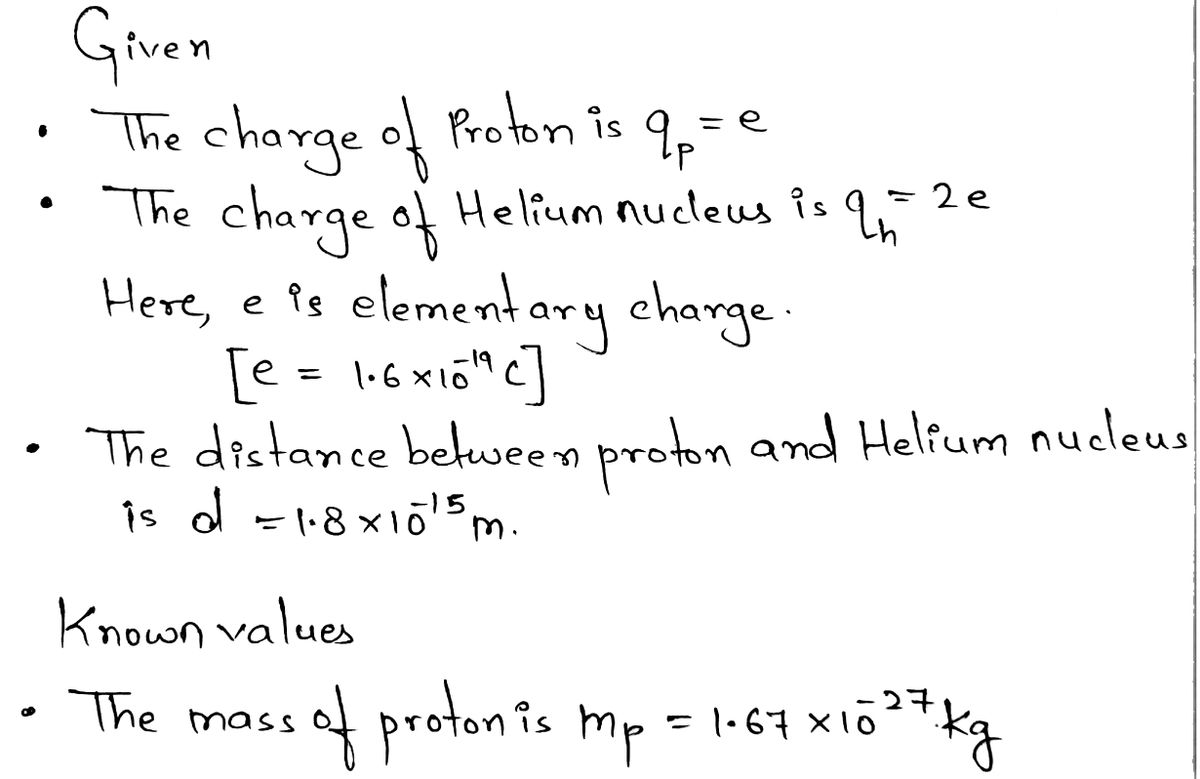 Given
• The charge of Proton is qₚ = e
• The charge of Helium nucleus is qₕ = 2e
Here, e is elementary charge.
[e = 1.6 × 10⁻¹⁹ C]
• The distance between proton and Helium nucleus
is d = 1.8 × 10⁻¹⁵ m.
Known values
• The mass of proton is mₚ = 1.67 × 10⁻²⁷ kg